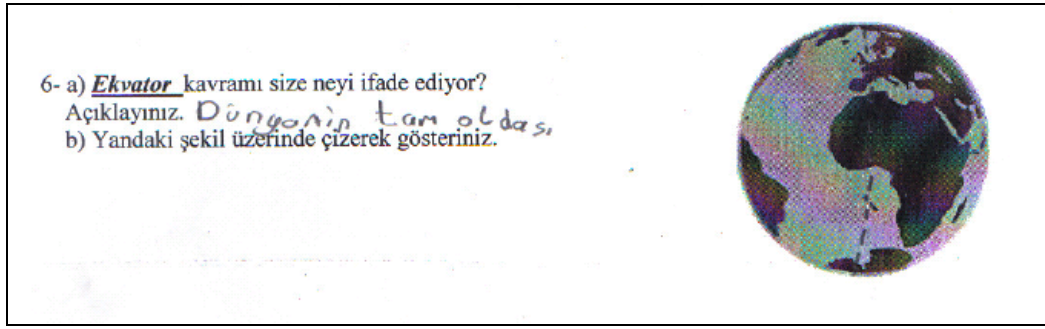 6- a) Ekvator kavramı size neyi ifade ediyor?
Açıklayınız. Dünyanin tam oldası
b) Yandaki şekil üzerinde çizerek gösteriniz.